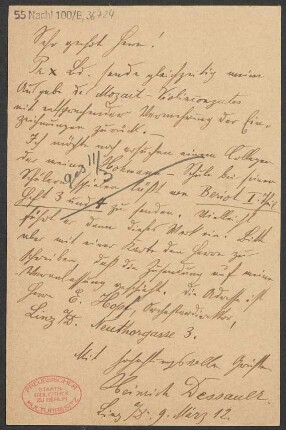 55 Nachl 100/B, 36724
Sehr geehrter Herr!
Per x Bd. sende gleichzeitig meine
Ausgabe des Mozart-Violinconzertes
mit entsprechender Vermehrung der Ein-
zeichnungen zurück. —
Ich möchte noch ersuchen einem Collegen
der meine Hohmann-Schule bei seinen
Schülern spielen läßt von Beriot I. Th.
Heft 3 und 4 zu senden. Vielleicht
führt er dann dieses Werk ein. Bitte
aber mit einer Karte dem Herrn zu
schreiben, daß die Zusendung auf meine
Veranlassung geschieht, die Adresse ist
Herr E. Hopf, Orchesterdirektor,
Linz a/D. Neuthorgasse 3.
Mit hochachtungsvollen Grüßen
Heinrich Dessauer
Linz a/D. 9. März 12.
PREUSSISCHER
STAATS-
BIBLIOTHEK
ZU BERLIN
KULTURBESITZ